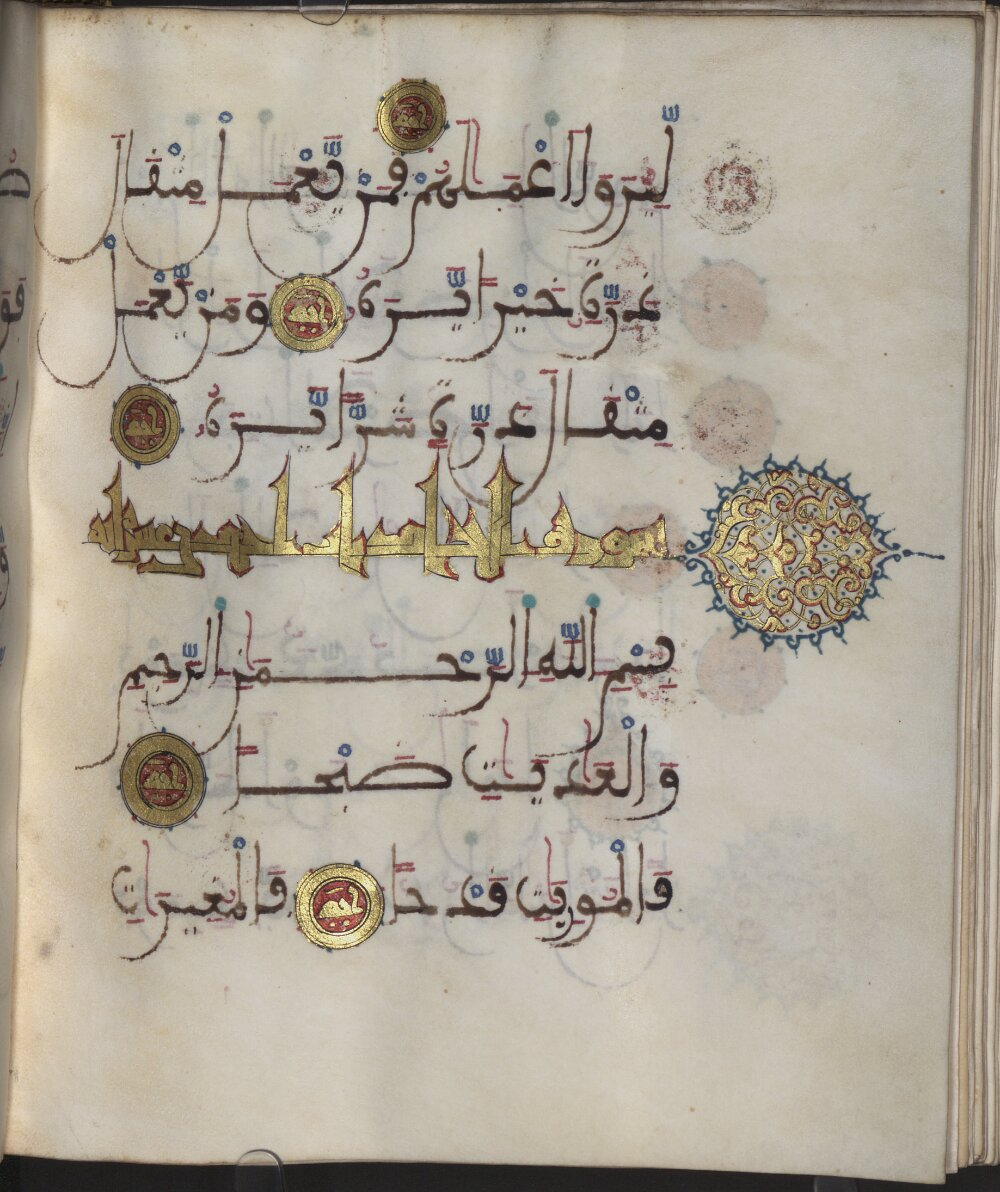 لِّيُرَوَا اَعْمَٰلَهُمْ فَمَنْ يَّعْمَلْ مِثْقَالَ
ذَرَّةٍ خَيْراً يَّرَهُۥ وَمَنْ يَّعْمَلْ
مِثْقَالَ ذَرَّةٍ شَرّاً يَّرَهُۥ
سورة
بِسْمِ اللَّهِ الرَّحْمَٰنِ الرَّحِيمِ
وَالْعَٰدِيَٰتِ ضَبْحاً
فَالْمُورِيَٰتِ قَدْحاً فَالْمُغِيرَٰتِ